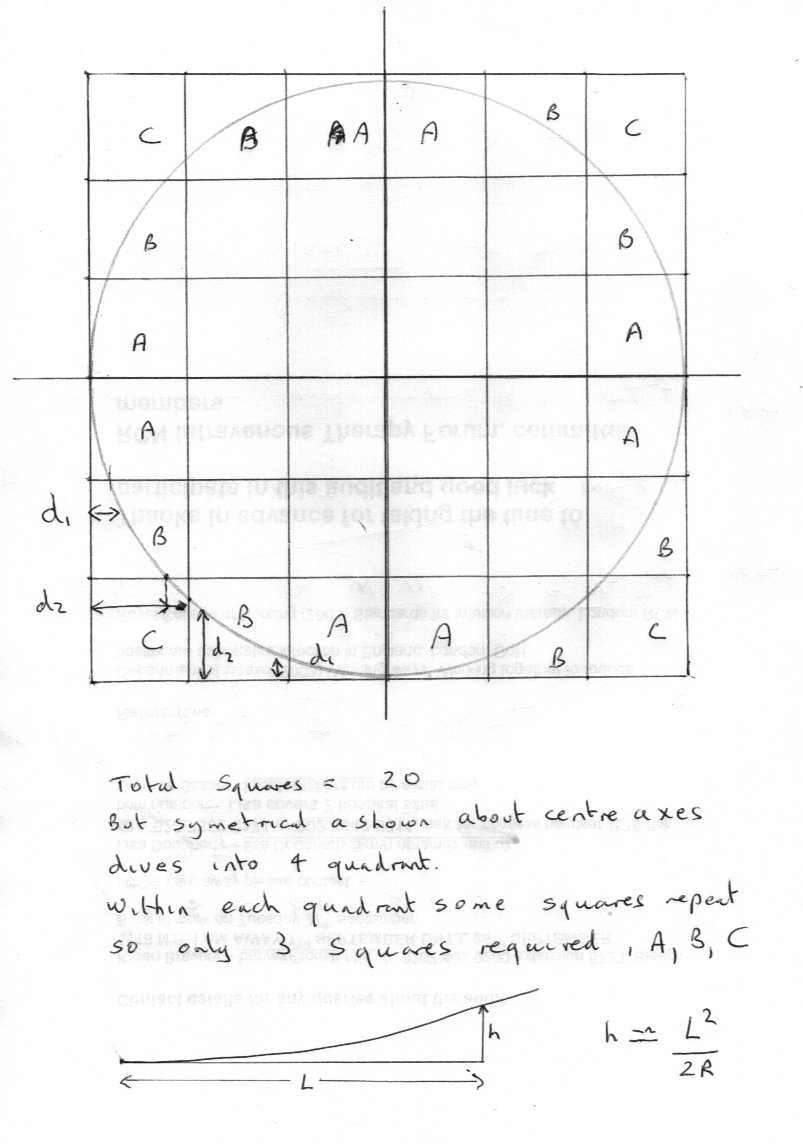 C B A A B C
B B
A A
A A
d1
B B
d2
C B A A B C
d2 d1
Total Squares = 20
But symetrical a shown about centre axes
dives into 4 quadrant.
Within each quadrant some squares repeat
so only 3 squares required, A, B, C
h
L
h ≃ L²
2R